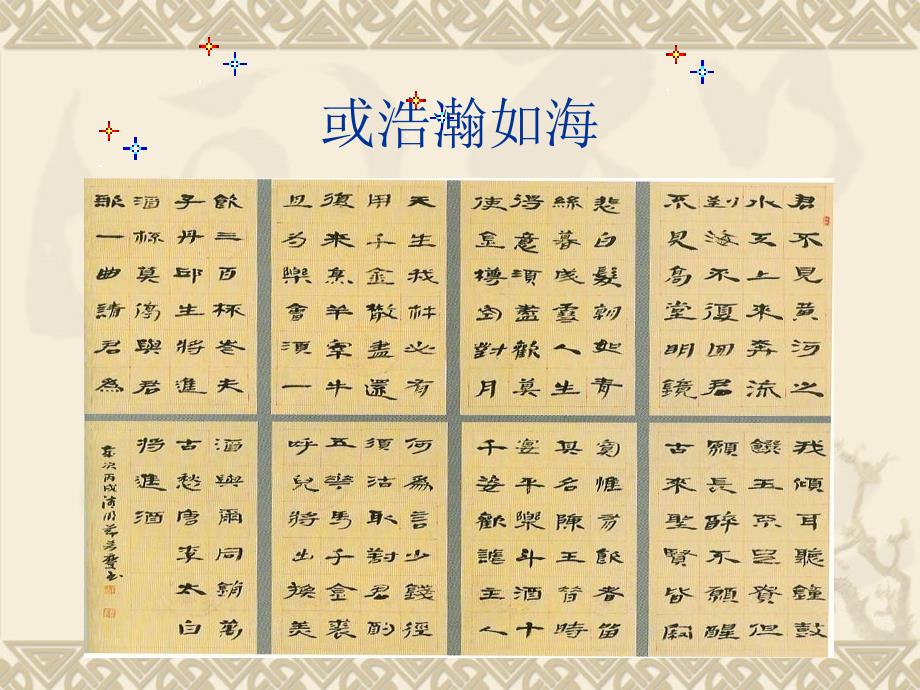 或浩瀚如海
君不見黃河之
水天上來奔流
到海不復回君
不見高堂明鏡
悲白髮朝如青
絲暮成雪人生
得意須盡歡莫
使金樽空對月
天生我材必有
用千金散盡還
復來烹羊宰牛
且為樂會須一
飲三百杯岑夫
子丹邱生將進
酒杯莫停與君
歌一曲請君為
我傾耳聽鐘鼓
饌玉不足貴但
願長醉不願醒
古來聖賢皆寂
寞惟有飲者留
其名陳王昔時
宴平樂斗酒十
千恣歡謔主人
何為言少錢徑
須沽取對君酌
五華馬千金裘
呼兒將出換美
酒與爾同銷萬
古愁唐李太白
將進酒
歲次丙戌